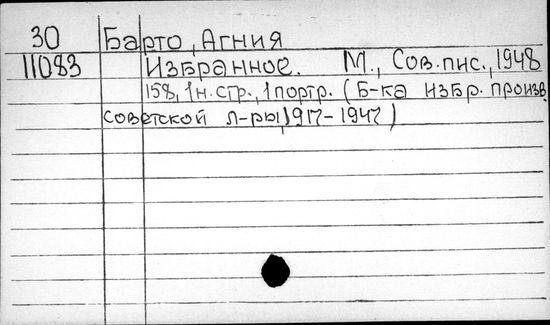 30 Барто, Агния
11083 Избранное. М., Сов.пис., 1948
158, 1н.стр., 1портр. (Б-ка избр. произв.
советской л-ры, 1917-1947)